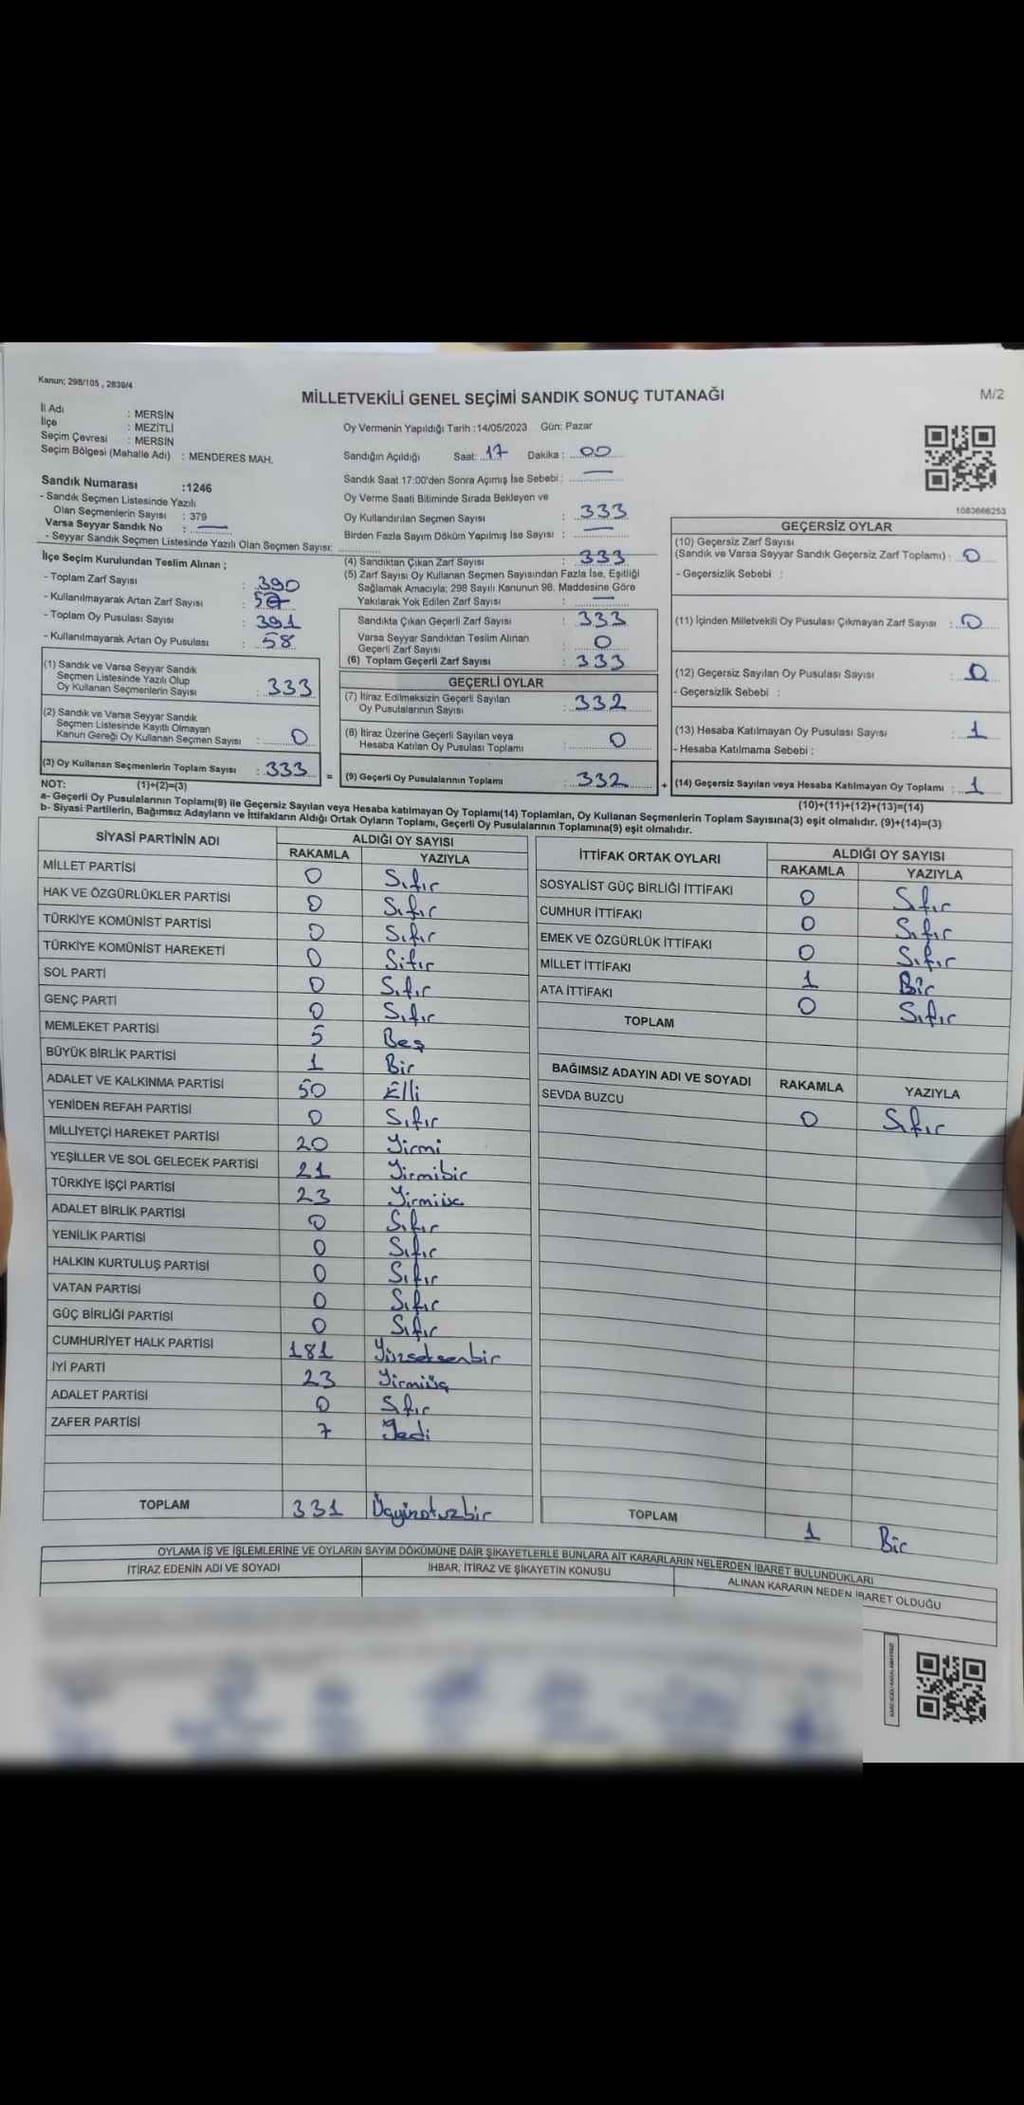 Kanun; 298/105 , 2839/4
MİLLETVEKİLİ GENEL SEÇİMİ SANDIK SONUÇ TUTANAĞI
M/2
İl Adı : MERSİN
İlçe : MEZİTLİ
Seçim Çevresi : MERSİN
Seçim Bölgesi (Mahalle Adı) : MENDERES MAH.
Sandık Numarası :1246
- Sandık Seçmen Listesinde Yazılı
Olan Seçmenlerin Sayısı : 379
Varsa Seyyar Sandık No : —
- Seyyar Sandık Seçmen Listesinde Yazılı Olan Seçmen Sayısı:
Oy Vermenin Yapıldığı Tarih :14/05/2023 Gün: Pazar
Sandığın Açıldığı Saat: 17 Dakika : 00
Sandık Saat 17:00'den Sonra Açımış İse Sebebi : —
Oy Verme Saati Bitiminde Sırada Bekleyen ve
Oy Kullandırılan Seçmen Sayısı : 333
Birden Fazla Sayım Döküm Yapılmış İse Sayısı : —
1083666253
İlçe Seçim Kurulundan Teslim Alınan ;
- Toplam Zarf Sayısı : 390
- Kullanılmayarak Artan Zarf Sayısı :
- Toplam Oy Pusulası Sayısı : 391
- Kullanılmayarak Artan Oy Pusulası : 58
(1) Sandık ve Varsa Seyyar Sandık
Seçmen Listesinde Yazılı Olup
Oy Kullanan Seçmenlerin Sayısı : 333
(2) Sandık ve Varsa Seyyar Sandık
Seçmen Listesinde Kayıtlı Olmayan
Kanun Gereği Oy Kullanan Seçmen Sayısı : 0
(3) Oy Kullanan Seçmenlerin Toplam Sayısı : 333 =
(4) Sandıktan Çıkan Zarf Sayısı : 333
(5) Zarf Sayısı Oy Kullanan Seçmen Sayısından Fazla İse, Eşitliği
Sağlamak Amacıyla; 298 Sayılı Kanunun 98. Maddesine Göre
Yakılarak Yok Edilen Zarf Sayısı : —
Sandıkta Çıkan Geçerli Zarf Sayısı : 333
Varsa Seyyar Sandıktan Teslim Alınan
Geçerli Zarf Sayısı : 0
(6) Toplam Geçerli Zarf Sayısı : 333
GEÇERLİ OYLAR
(7) İtiraz Edilmeksizin Geçerli Sayılan
Oy Pusulalarının Sayısı : 332
(8) İtiraz Üzerine Geçerli Sayılan veya
Hesaba Katılan Oy Pusulası Toplamı : 0
(9) Geçerli Oy Pusulalarının Toplamı : 332 +
GEÇERSİZ OYLAR
(10) Geçersiz Zarf Sayısı
(Sandık ve Varsa Seyyar Sandık Geçersiz Zarf Toplamı) : 0
- Geçersizlik Sebebi :
(11) İçinden Milletvekili Oy Pusulası Çıkmayan Zarf Sayısı : 0
(12) Geçersiz Sayılan Oy Pusulası Sayısı : 0
- Geçersizlik Sebebi :
(13) Hesaba Katılmayan Oy Pusulası Sayısı : 1
- Hesaba Katılmama Sebebi :
(14) Geçersiz Sayılan veya Hesaba Katılmayan Oy Toplamı : 1
NOT: (1)+(2)=(3)
(10)+(11)+(12)+(13)=(14)
a- Geçerli Oy Pusulalarının Toplamı(9) ile Geçersiz Sayılan veya Hesaba katılmayan Oy Toplamı(14) Toplamları, Oy Kullanan Seçmenlerin Toplam Sayısına(3) eşit olmalıdır. (9)+(14)=(3)
b- Siyasi Partilerin, Bağımsız Adayların ve İttifakların Aldığı Ortak Oyların Toplamı, Geçerli Oy Pusulalarının Toplamına(9) eşit olmalıdır.
SİYASİ PARTİNİN ADI ALDIĞI OY SAYISI
RAKAMLA YAZIYLA
MİLLET PARTİSİ 0 Sıfır
HAK VE ÖZGÜRLÜKLER PARTİSİ 0 Sıfır
TÜRKİYE KOMÜNİST PARTİSİ 0 Sıfır
TÜRKİYE KOMÜNİST HAREKETİ 0 Sıfır
SOL PARTİ 0 Sıfır
GENÇ PARTİ 0 Sıfır
MEMLEKET PARTİSİ 5 Beş
BÜYÜK BİRLİK PARTİSİ 1 Bir
ADALET VE KALKINMA PARTİSİ 50 Elli
YENİDEN REFAH PARTİSİ 0 Sıfır
MİLLİYETÇİ HAREKET PARTİSİ 20 Yirmi
YEŞİLLER VE SOL GELECEK PARTİSİ 21 Yirmibir
TÜRKİYE İŞÇİ PARTİSİ 23 Yirmiüç
ADALET BİRLİK PARTİSİ 0 Sıfır
YENİLİK PARTİSİ 0 Sıfır
HALKIN KURTULUŞ PARTİSİ 0 Sıfır
VATAN PARTİSİ 0 Sıfır
GÜÇ BİRLİĞİ PARTİSİ 0 Sıfır
CUMHURİYET HALK PARTİSİ 181 Yüzseksenbir
İYİ PARTİ 23 Yirmiüç
ADALET PARTİSİ 0 Sıfır
ZAFER PARTİSİ 7 Yedi
TOPLAM 331 Üçyüzotuzbir
İTTİFAK ORTAK OYLARI ALDIĞI OY SAYISI
RAKAMLA YAZIYLA
SOSYALİST GÜÇ BİRLİĞİ İTTİFAKI 0 Sıfır
CUMHUR İTTİFAKI 0 Sıfır
EMEK VE ÖZGÜRLÜK İTTİFAKI 0 Sıfır
MİLLET İTTİFAKI 1 Bir
ATA İTTİFAKI 0 Sıfır
TOPLAM
BAĞIMSIZ ADAYIN ADI VE SOYADI RAKAMLA YAZIYLA
SEVDA BUZCU 0 Sıfır
TOPLAM 1 Bir
OYLAMA İŞ VE İŞLEMLERİNE VE OYLARIN SAYIM DÖKÜMÜNE DAİR ŞİKAYETLERLE BUNLARA AİT KARARLARIN NELERDEN İBARET BULUNDUKLARI
İTİRAZ EDENİN ADI VE SOYADI İHBAR, İTİRAZ VE ŞİKAYETİN KONUSU ALINAN KARARIN NEDEN İBARET OLDUĞU